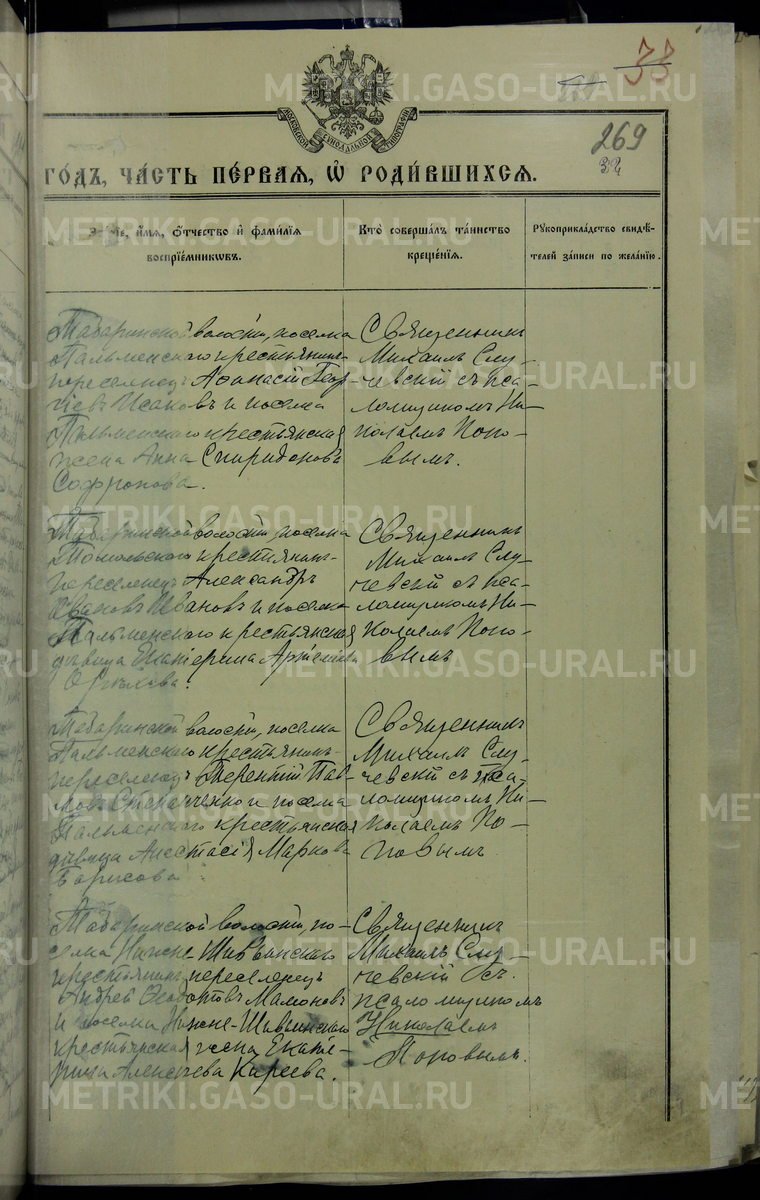 33
269
32
МОСКОВСКОЙ СѴНОДАЛЬНОЙ ТИПОГРАФІИ
ГО́ДЪ, ЧА́СТЬ ПЕ́РВАЯ, Ѡ҆ РОДИ́ВШИХСЯ.
и҆́мѧ, ѻ҆́тчество и҆ фами́лїѧ
воспрїе́мниковъ.
Кто̀ соверша́лъ та́инство
креще́нїѧ.
Рꙋкоприкла́дство свидѣ́-
телей за́писи по жела́нїю.
Табаринской волости, поселка
Пальменскаго крестьянин-
переселенецъ Аѳанасій Геор-
гіевъ Исаковъ и поселка
Пальменскаго крестьянская
жена Анна Спиридонова
Софронова.
Священникъ
Михаилъ Слу-
чевскій съ пса-
ломщикомъ Ни-
колаемъ Попо-
вымъ.
Табаринской волости, поселка
крестьянинъ-
переселенецъ Александръ
Ивановъ Ивановъ и поселка
Пальменскаго крестьянская
дѣвица Екатерина
Священникъ
Михаилъ Слу-
чевскій съ пса-
ломщикомъ Ни-
колаемъ Попо-
вымъ
Табаринской волости, поселка
Пальменскаго крестьянинъ-
переселенецъ Терентій Пав-
ловъ и поселка
Пальменскаго крестьянская
дѣвица Анастасія Маркова
Борисова
Священникъ
Михаилъ Слу-
чевскій съ пса-
ломщикомъ Ни-
колаемъ По-
повымъ
Табаринской волости, по-
селка Нижне-
крестьянинъ переселенецъ
Андрей Ѳедотовъ Мамоновъ
и поселка Нижне-
крестьянская жена Екате-
рина Алексѣева Кареева.
Священникъ
Михаилъ Слу-
чевскій съ
псаломщикомъ
Николаемъ
Поповымъ.
METRIKI.GASO-URAL.RU